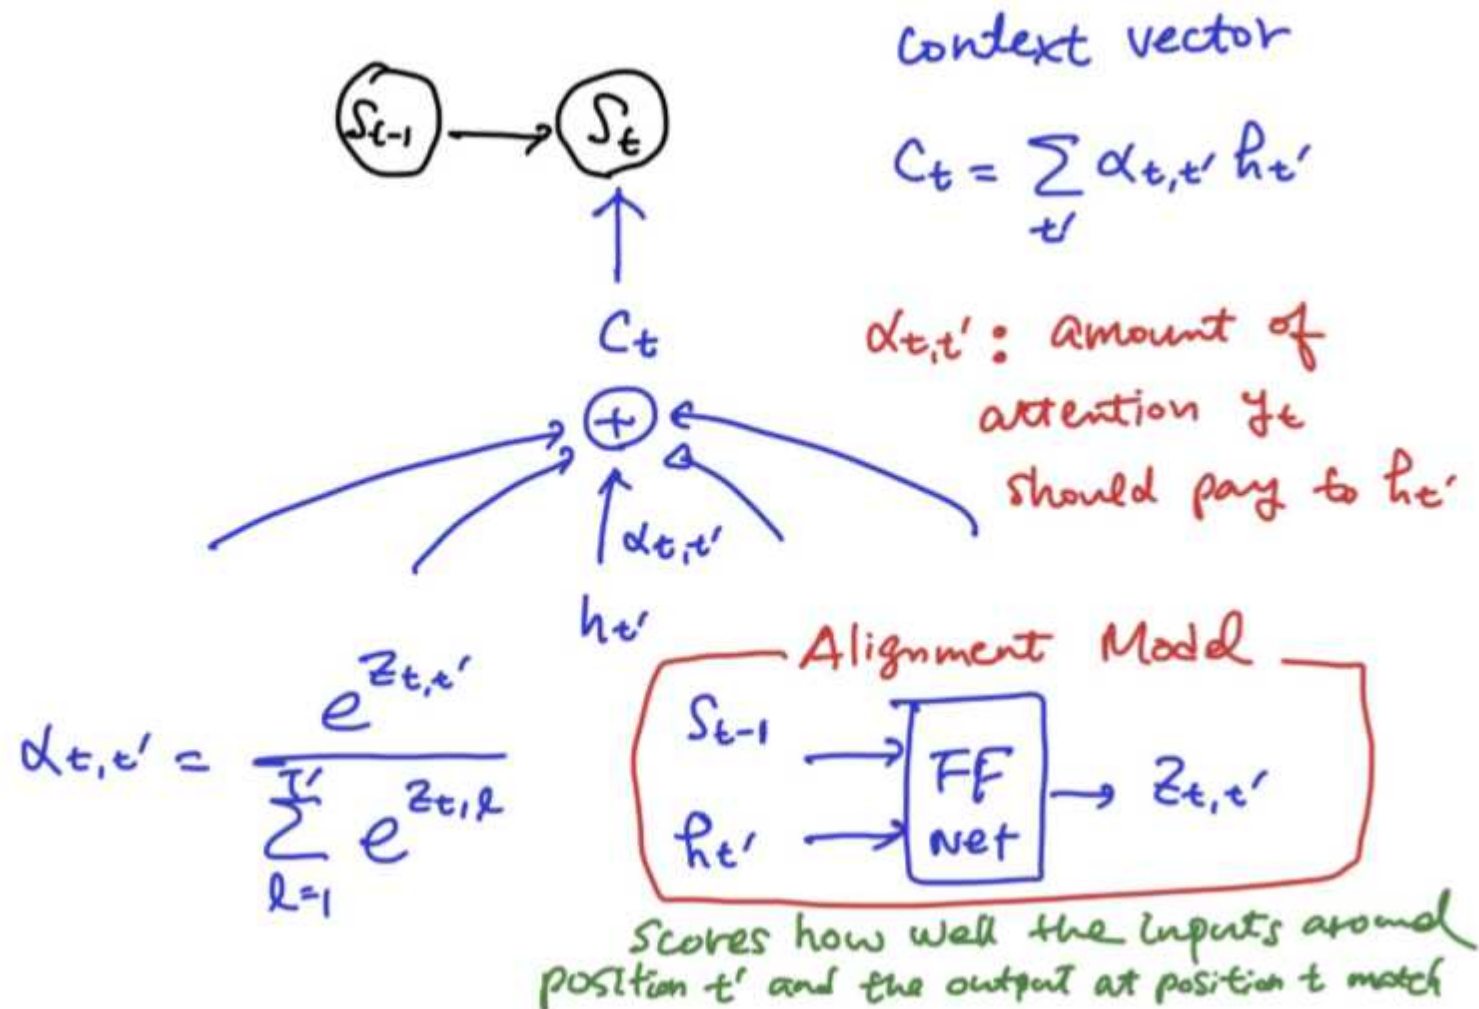 context vector
S_{t-1} → S_t
C_t = ∑_{t'} α_{t,t'} h_{t'}
C_t
α_{t,t'} : amount of
attention y_t
should pay to h_{t'}
+
α_{t,t'}
h_{t'}
Alignment Model
α_{t,t'} = e^{z_{t,t'}} / ∑_{l=1}^{T'} e^{z_{t,l}}
S_{t-1}
h_{t'}
FF
Net
→ z_{t,t'}
Scores how well the inputs around
position t' and the output at position t match